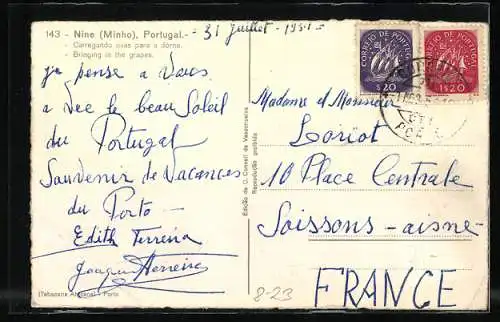 143 - Nine (Minho), Portugal. - 31 Juillet - 1951 -
- Carregando uvas para a dorna.
- Bringing in the grapes.
je pense a Vous
a Vec le beau Soleil
du Portugal
Souvenir de Vacances
du Porto -
Edith Ferreira
Ferreira
(Tabacaria Africana) - Porto
Edição de O. Consal de Vasconcelos
Reprodução proibida
CORREIO DE PORTUGAL
$20
CORREIO DE PORTUGAL
1$20
Madame et Monsieur
Loriot
10 Place Centrale
Soissons - aisne -
FRANCE
8-23